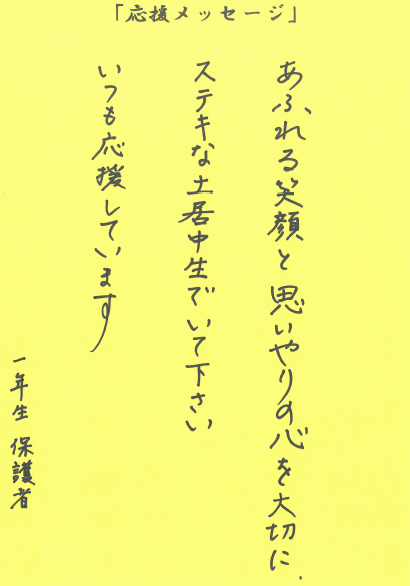 「応援メッセージ」
あふれる笑顔と思いやりの心を大切に.
ステキな土居中生でいて下さい
いつも応援しています
一年生 保護者